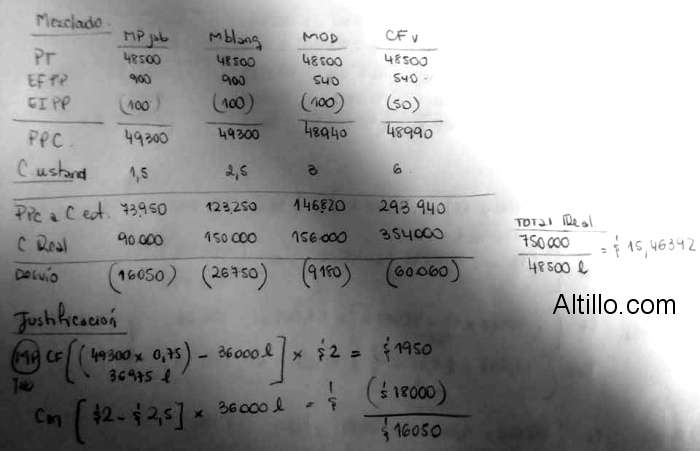 Mezclado.
MP jab Mblanq MOD CFv
PT 48500 48500 48500 48500
EFPP 900 900 540 540
EIPP (100) (100) (100) (50)
PPC 49300 49300 48940 48990
C ustand 1,5 2,5 3 6
PPc a C est. 73950 123250 146820 293 940
C Real 90.000 150 000 156.000 354000
Desvío (16050) (26750) (9180) (60.060)
TOTAL Real
750000 = $ 15,46342
48500 l
Altillo.com
Justificación
MP CF [(49300 x 0,75) - 36000 l] x $ 2 = $ 1950
36975 l
Cm [$2 - $2,5] x 36000 l = $ ($ 18000)
$ 16050